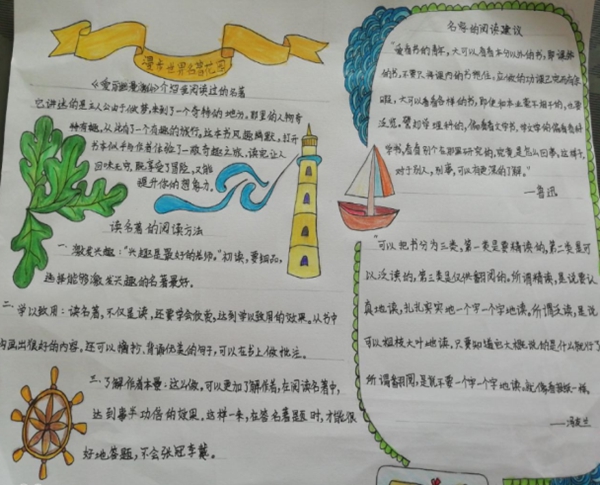 漫步世界名著花园
《爱丽丝漫游》介绍我阅读过的名著
它讲述的是主人公由于做梦,来到了一个奇特的地方,那里的人物奇
特有趣,从此有了一个有趣的旅行,这本书风趣幽默,打开
书本似乎和作者体验了一次奇趣之旅,读完让人
回味无穷,既享受了冒险,又能
提升你的想象力。
读名著的阅读方法
一、激发兴趣:“兴趣是最好的老师。”初读,要细品,
选择能够激发兴趣的名著最好。
二、学以致用:读名著,不仅是读,还要学会欣赏,达到学以致用的效果。从书中
内画出很好的内容,还可以摘抄、背诵优美的句子,可以在书上做批注。
三、了解作者本意:这么做,可以更加了解作者,在阅读名著中,
达到事半功倍的效果。这样一来,在答名著题时,才能很
好地答题,不会张冠李戴。
名家的阅读建议
“爱看书的青年,大可以看看本分以外的书,即课外
的书,不要只将课内的书抱住,应做的功课已完而有余
暇,大可以看看各样的书,即使和本业毫不相干的,也要
泛览。譬如学理科的,偏看看文学书,学文学的偏看看科
学书,看看别个在那里研究的,究竟是怎么回事。这样子,
对于别人,别事,可以有更深的了解。”
——鲁迅
“可以把书分为三类,第一类是要精读的,第二类是可
以泛读的,第三类是仅供翻阅的。所谓精读,是说要认
真地读,扎扎实实地一个字一个字地读。所谓泛读,是说
可以粗枝大叶地读,只要知道它大概说的是什么就行了。
所谓翻阅,是说不要一个字一个字地读,就像看报纸一样。